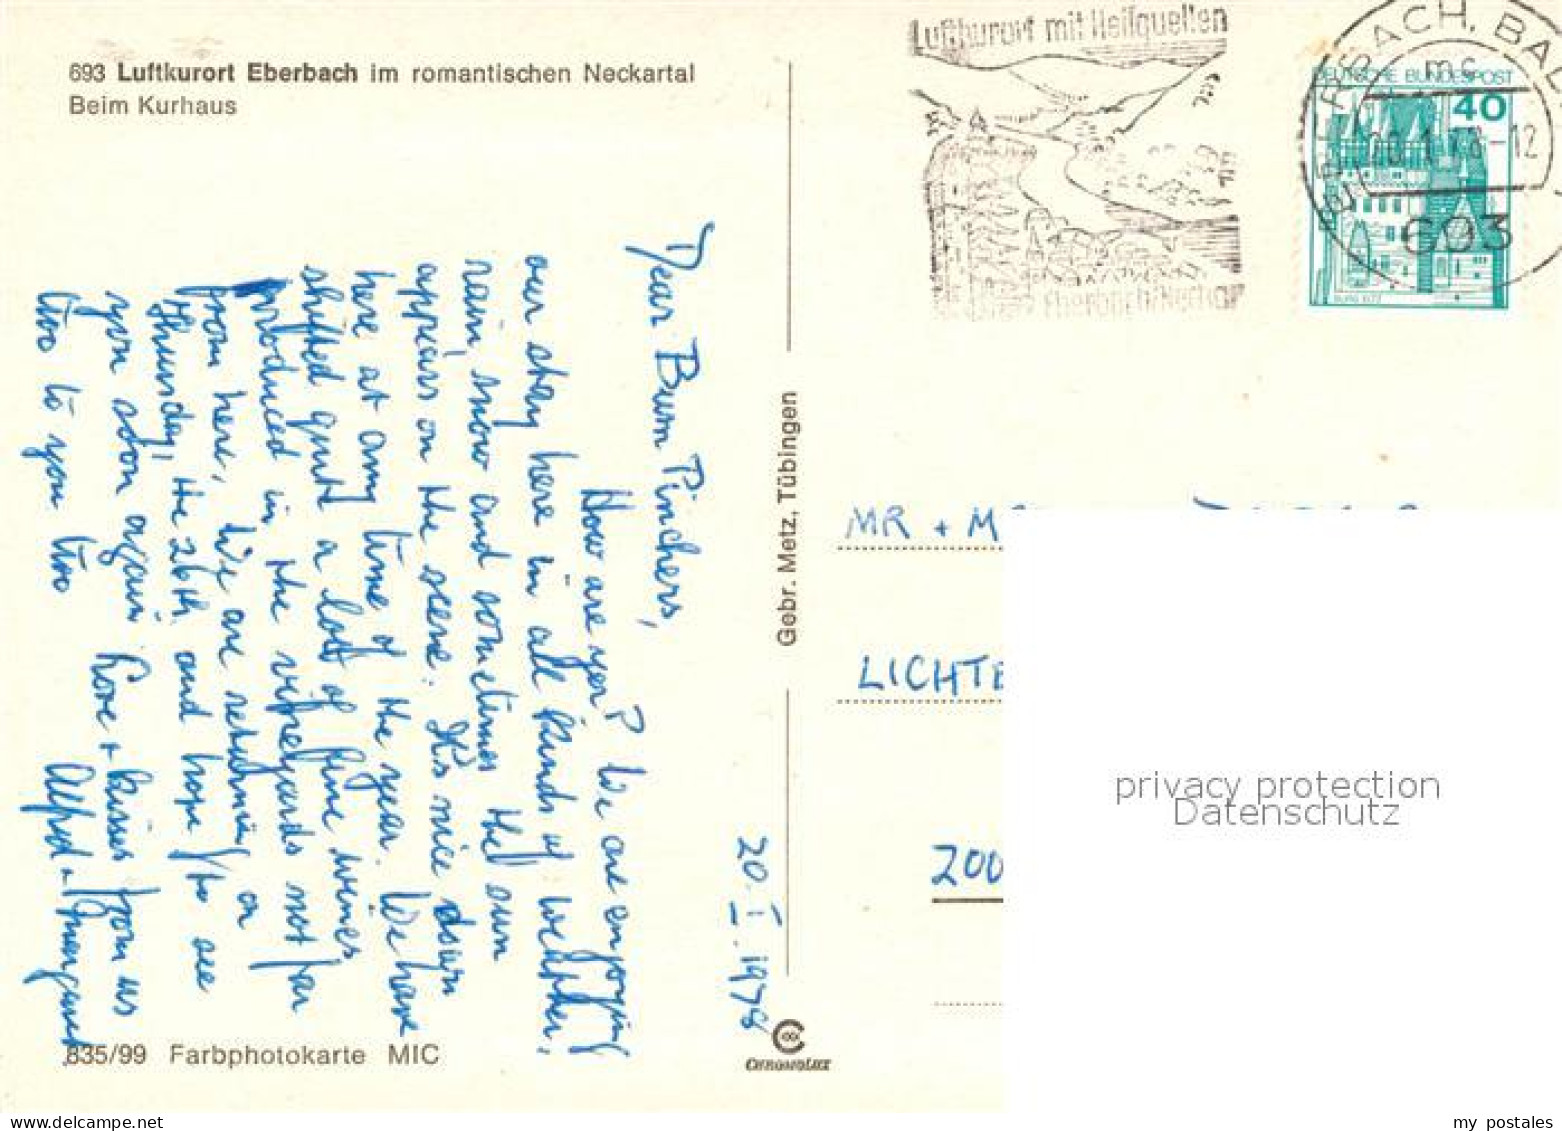 693 Luftkurort Eberbach im romantischen Neckartal
Beim Kurhaus
Luftkurort mit Heilquellen
Eberbach/Neckar
EBERBACH, BAD
mc
20.1.78-12
693
DEUTSCHE BUNDESPOST
40
BURG ELTZ
20.I.1978
Dear Bum Pinchers,
How are you? We are enjoying
our stay here in all kinds of weather,
rain, snow and sometimes the sun
appears on the scene. It's nice down
here at any time of the year. We have
shifted quite a lot of fine wines
produced in the vineyards not far
from here. We are returning on
Thursday, the 26th and hope to see
you soon again. Love + kisses from us
two to you two Alfred +
MR + M
LICHTE
200
Gebr. Metz, Tübingen
835/99 Farbphotokarte MIC
CHROMOLUX
privacy protection
Datenschutz
my postales